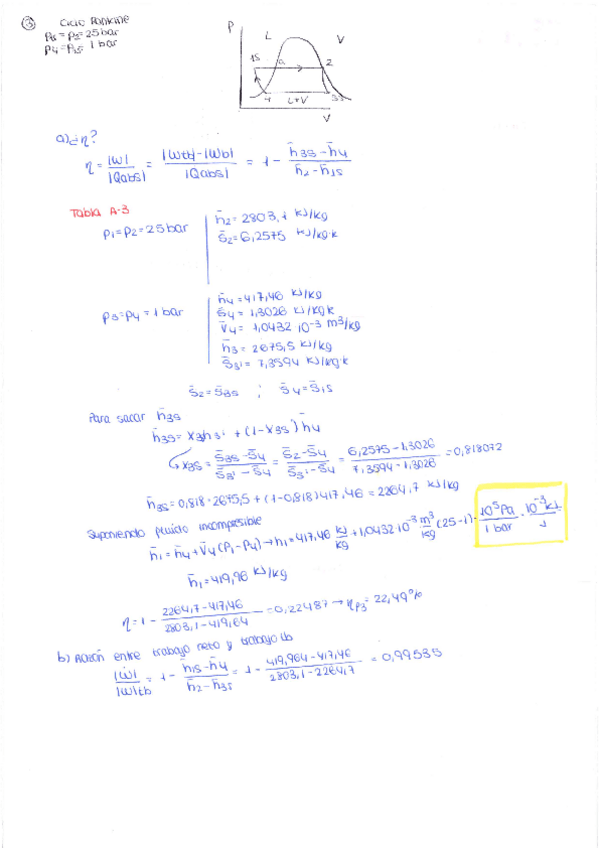 ③ Ciclo Rankine
P1 = P2 = 25 bar
P4 = P3 = 1 bar
P
L
V
1S
a
2
4
L+V
3S
V
a) ¿η?
η = |W| / |Qabs| = (|Wtb| - |Wb|) / |Qabs| = 1 - (h̄3S - h̄4) / (h̄2 - h̄1S)
Tabla A-3
P1 = P2 = 25 bar
h̄2 = 2803,1 kJ/kg
s̄2 = 6,2575 kJ/kg·k
P3 = P4 = 1 bar
h̄4 = 417,46 kJ/kg
s̄4 = 1,3026 kJ/kg·k
v̄4 = 1,0432 10⁻³ m³/kg
h̄3 = 2675,5 kJ/kg
s̄3' = 7,3594 kJ/kg·k
s̄2 = s̄3S ; s̄4 = s̄1S
Para sacar h̄3S
h̄3S = x3 h3' + (1 - x3S) h̄4
x3S = (s̄3S - s̄4) / (s̄3' - s̄4) = (s̄2 - s̄4) / (s̄3' - s̄4) = (6,2575 - 1,3026) / (7,3594 - 1,3026) = 0,818072
h̄3S = 0,818 · 2675,5 + (1 - 0,818) 417,46 = 2264,7 kJ/kg
Suponiendo fluido incompresible
h̄1 = h̄4 + v̄4 (P1 - P4) → h1 = 417,46 kJ/kg + 1,0432 10⁻³ m³/kg (25 - 1) · 10⁵ Pa / 1 bar · 10⁻³ kJ / 1
h̄1 = 419,96 kJ/kg
η = 1 - (2264,7 - 417,46) / (2803,1 - 419,64) = 0,22487 → ηP3 = 22,49%
b) Razón entre trabajo neto y trabajo tb
|W| / |W|tb = 1 - (h̄1S - h̄4) / (h̄2 - h̄3S) = 1 - (419,964 - 417,46) / (2803,1 - 2264,7) = 0,99535